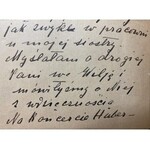 jak zwykle w pracowni
u mojej siostry
Myślałam o drogiej
Pani we Wilję i
mówiłyśmy o Niej
z wdzięcznością
Na Koncercie Huber-